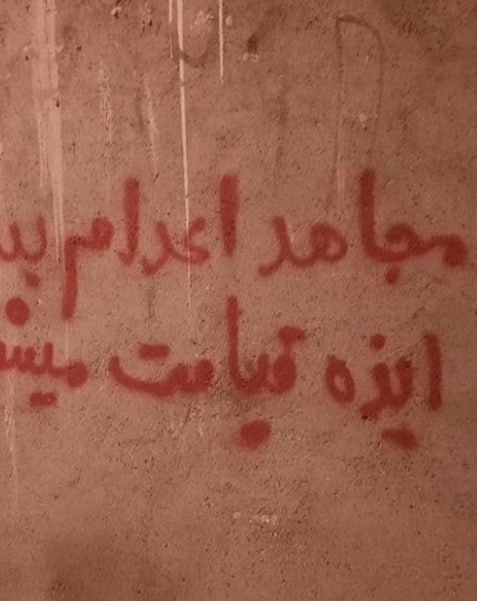 مجاهد اعدام بد
ایذه قیامت میش